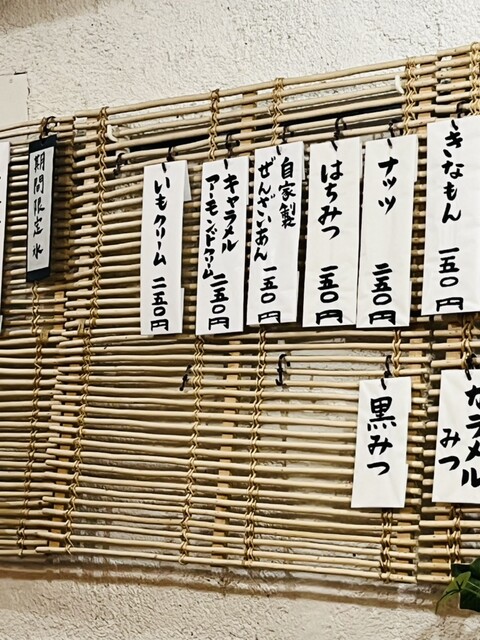 きなもん 一五〇円
ナッツ 二五〇円
はちみつ 一五〇円
自家製
ぜんざいあん 一五〇円
キャラメル
アーモンドクリーム 二五〇円
いもクリーム 二五〇円
期間限定 氷
カラメル
みつ
黒みつ